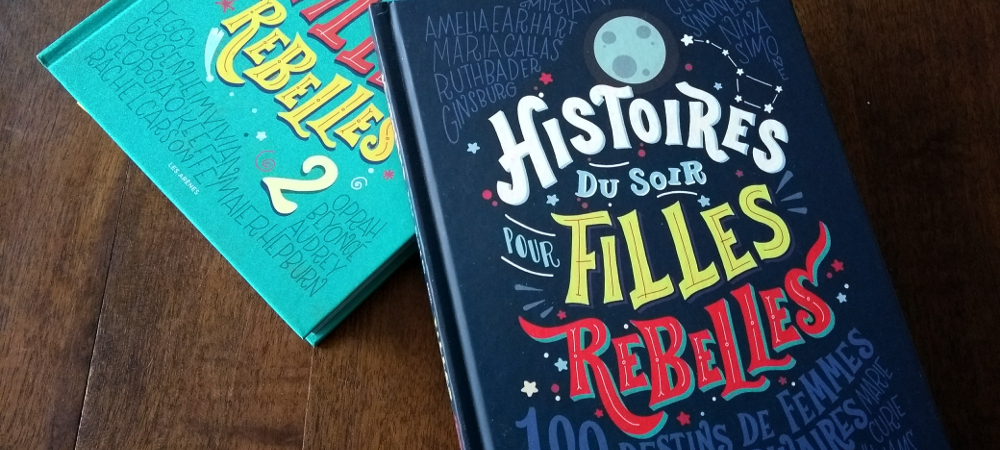 REBELLES
2
PEGGY
GUGGENHEIM
GEORGIA O'KEEFFE
RACHEL
CARSON
VIVIAN
MAIER
LES ARÈNES
OPRAH
BEYONCÉ
AUDREY
HEPBURN
AMELIA EARHART
MARIA CALLAS
RUTH BADER
GINSBURG
NINA
SIMONE
HISTOIRES
DU SOIR
POUR
FILLES
REBELLES
100 DESTINS DE FEMMES
MARIE
CURIE